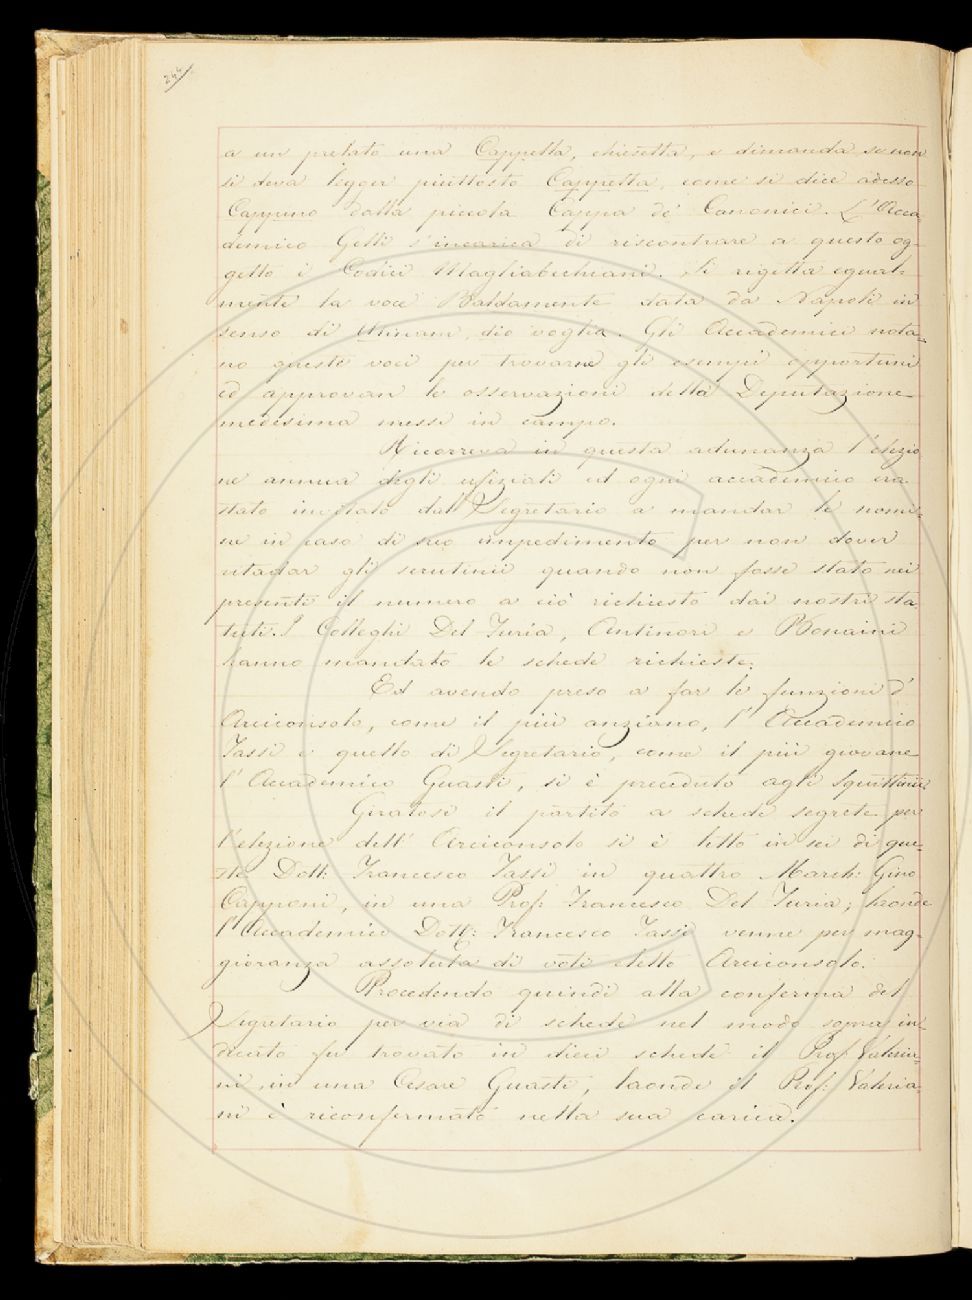 244
a un prelato una Cappella, chiesetta, e dimanda se non
si deva legger piuttosto Cappetta, come si dice adesso
Cappino dalla piccola Cappa de' Canonici. L'Acca-
demico Gelli s'incarica di riscontrare a questo og-
getto i Codici Magliabechiani. Si rigetta egual-
mente la voce Baldamente data da Napoli in
senso di dio voglia. Gli Accademici nota-
no queste voci per trovarne gli esempi opportuni
ed approvan le osservazioni della Deputazione
medesima messe in campo.
Ricorreva in questa adunanza l'elezio
ne annua degli ufiziali ed ogni accademico era
stato invitato dal Segretario a mandar le nomi-
ne in caso di suo impedimento per non dover
ritardar gli scrutinii quando non fosse stato nei
presenti il numero a ciò richiesto dai nostri sta
tuti. I Colleghi Del Furia, Antinori e Bonaini
hanno mandato le schede richieste.
Ed avendo preso a far le funzioni d'
Arciconsolo, come il più anziano, l'Accademico
Tassi e quello di Segretario, come il più giovane
l'Accademico Guasti, si è proceduto agli squittinii
Giratosi il partito a schede segrete per
l'elezione dell'Arciconsolo si è letto in sei di que-
ste Dott: Francesco Tassi in quattro March: Gino
Capponi, in una Prof: Francesco Del Furia; laonde
l'Accademico Dott: Francesco Tassi venne per mag-
gioranza assoluta di voti eletto Arciconsolo.
Procedendo quindi alla conferma del
Segretario per via di schede nel modo sopra in-
dicato fu trovato in dieci schede il Prof: Valeria-
ni, in una Cesare Guasti, laonde il Prof: Valeria-
ni è riconfermato nella sua carica.